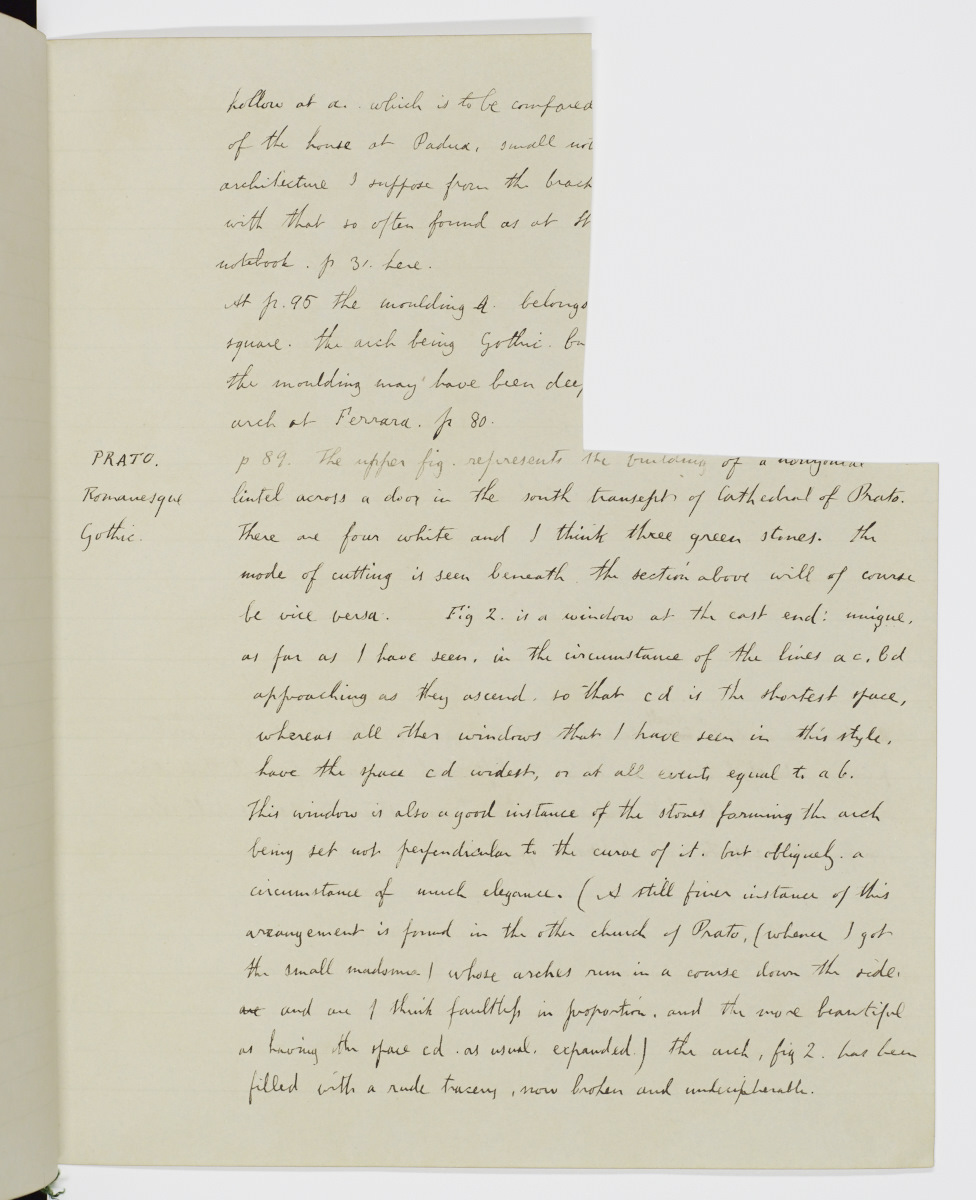 hollow at a. which is to be compared
of the house at Padua, small not
architecture I suppose from the brack
with that so often found as at St
notebook. p 31. here.
At p. 95 the moulding A. belongs
square. the arch being Gothic. bu
the moulding may have been deep
arch at Ferrara. p 80.
PRATO. p 89. The upper fig. represents the building of a
Romanesque lintel across a door in the south transept of Cathedral of Prato.
Gothic. There are four white and I think three green stones. The
mode of cutting is seen beneath. the section above will of course
be vice versa. Fig 2. is a window at the east end: unique,
as far as I have seen, in the circumstance of the lines a c, b d
approaching as they ascend. so that c d is the shortest space,
whereas all other windows that I have seen in this style,
have the space c d widest, or at all events equal to a b.
This window is also a good instance of the stones forming the arch
being set not perpendicular to the curve of it. but obliquely. a
circumstance of much elegance. (A still finer instance of this
arrangement is found in the other church of Prato, (whence I got
the small madonna) whose arches run in a course down the side.
are and are I think faultless in proportion. and the more beautiful
as having the space c d. as usual. expanded.) the arch, fig 2. has been
filled with a rude tracery, now broken and undecipherable.